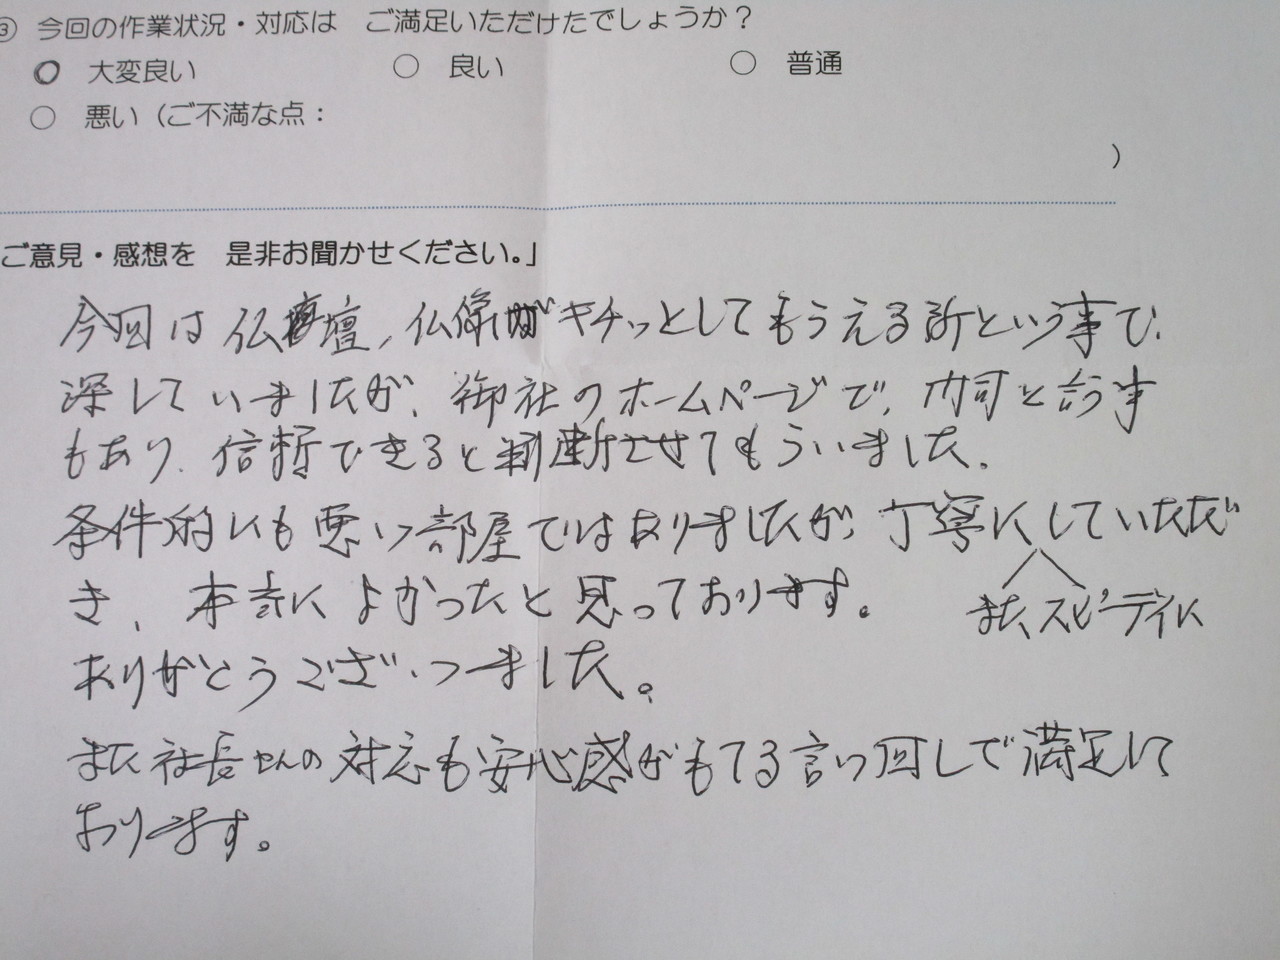 ③ 今回の作業状況・対応は ご満足いただけたでしょうか？
○ 大変良い ○ 良い ○ 普通
○ 悪い（ご不満な点：
）
ご意見・感想を 是非お聞かせください。」
今回は仏壇、仏像がキチッとしてもらえる所という事で、
探していましたが、御社のホームページで、と言う事
もあり、信頼できると判断させてもらいました。
条件的にも悪い部屋ではありましたが、丁寧にしていただ
き、本当によかったと思っております。
また、スピーディに
ありがとうございました。
また社長さんの対応も安心感がもてる言い回しで満足して
おります。